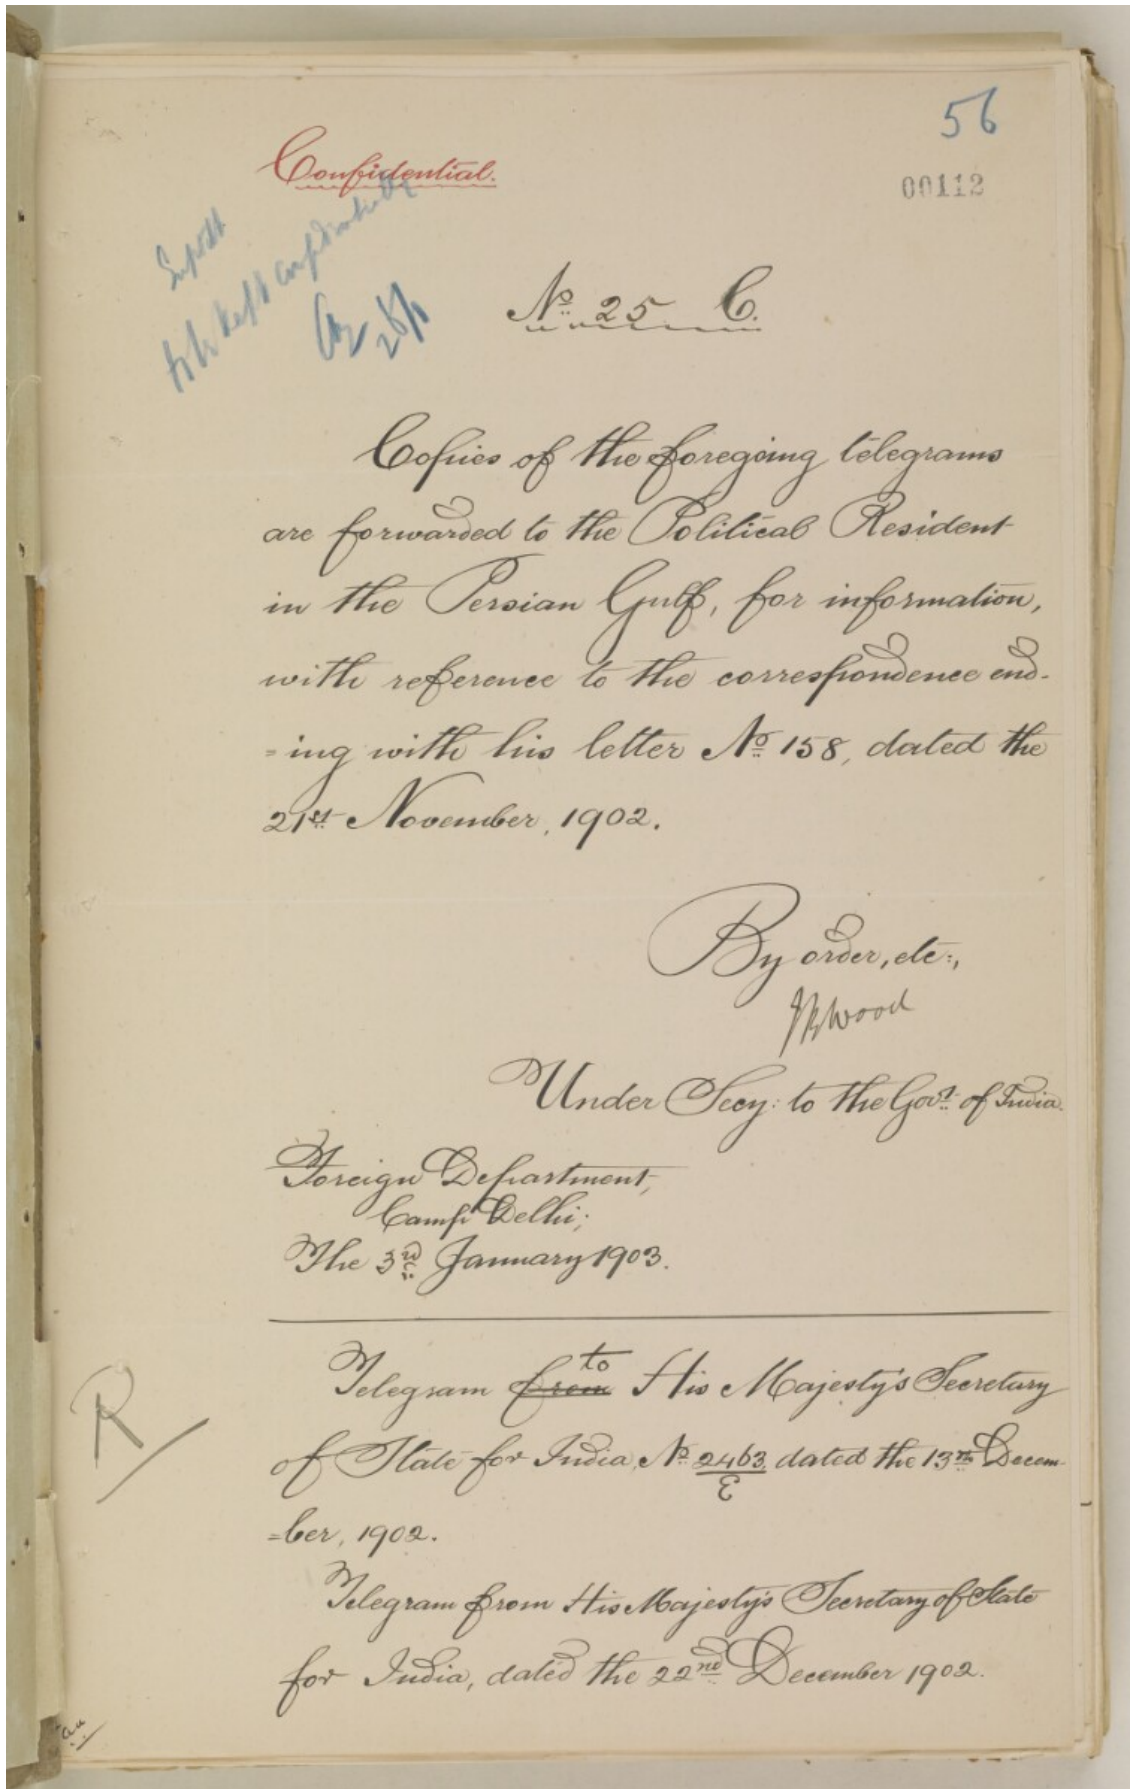 56
Confidential.
00112
kept confidentially
28/1
No. 25 C.
Copies of the foregoing telegrams
are forwarded to the Political Resident
in the Persian Gulf, for information,
with reference to the correspondence end-
=ing with his letter No. 158, dated the
21st November, 1902.
By order, etc:,
Wood
Under Secy: to the Govt. of India.
Foreign Department,
Camp Delhi;
The 3rd January 1903.
to
Telegram from His Majesty's Secretary
of State for India, No. 2463 dated the 13th Decem-
E
=ber, 1902.
R
Telegram from His Majesty's Secretary of State
for India, dated the 22nd December 1902.